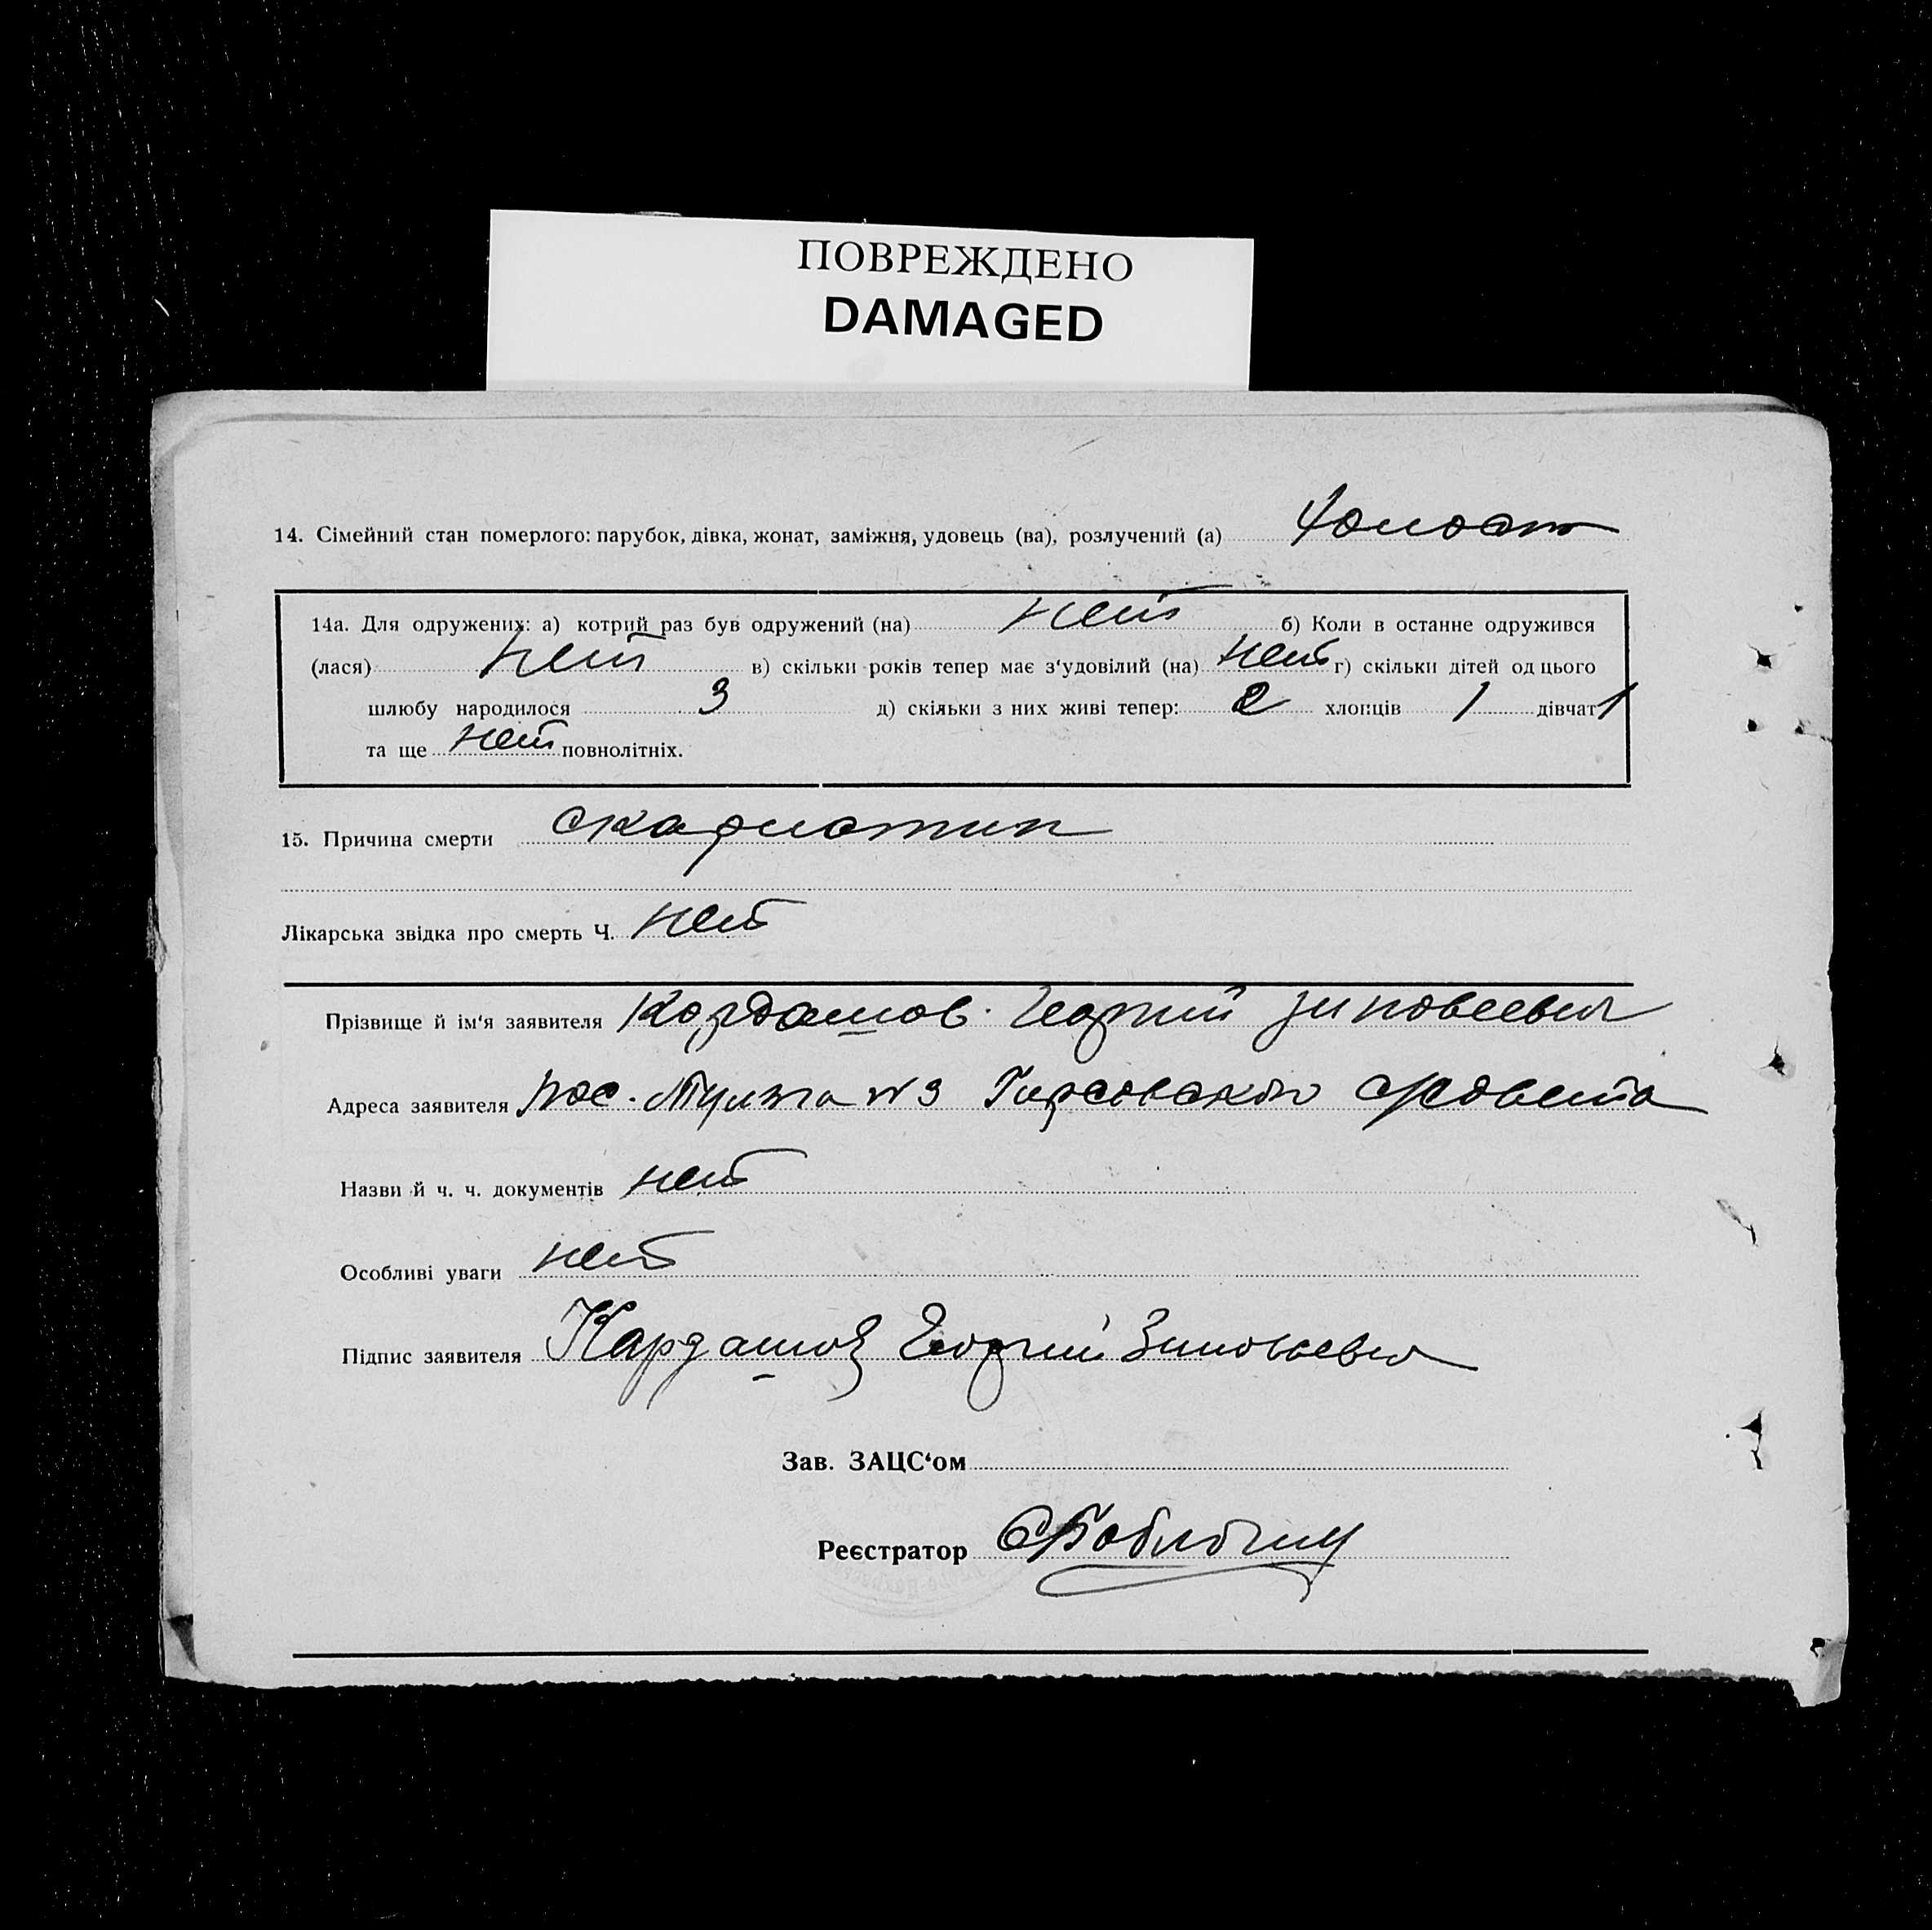 ПОВРЕЖДЕНО
DAMAGED
14. Сімейний стан померлого: парубок, дівка, жонат, заміжня, удовець (ва), розлучений (а) Холост
14а. Для одружених: а) котрий раз був одружений (на) нет б) Коли в останне одружився
(лася) нет в) скільки років тепер має з‘удовілий (на) нет г) скільки дітей од цього
шлюбу народилося 3 д) скільки з них живі тепер: 2 хлопців 1 дівчат 1
та ще нет повнолітніх.
15. Причина смерти скарлотин
Лікарська звідка про смерть Ч. нет
Прізвище й ім‘я заявителя Кордашов Георгий Зиновеевич
Адреса заявителя пос. №3 Гирсовского с/совета
Назви й ч. ч. документів нет
Особливі уваги нет
Підпис заявителя Кардашов Георгий Зиновьевич
Зав. ЗАЦС‘ом
Реєстратор